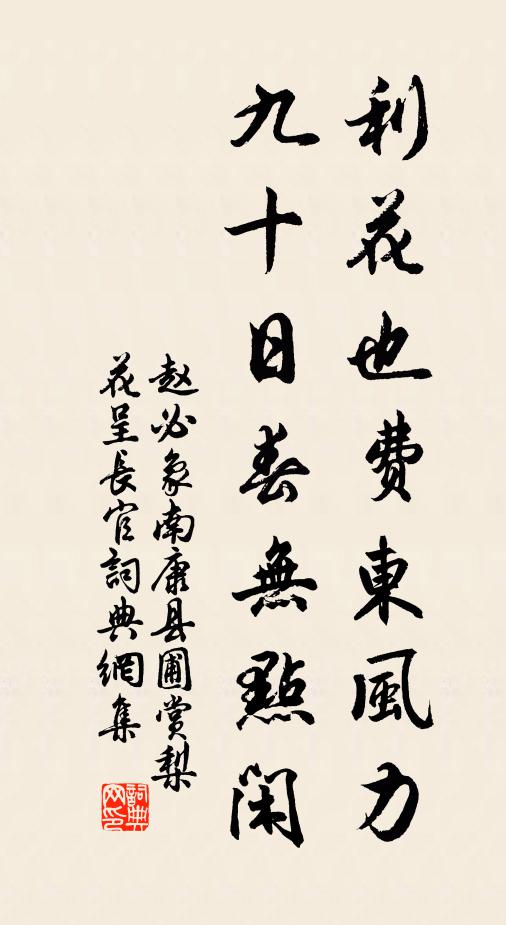 利花也费東風力
九十日春無點闲
赵必象南康县圃赏梨
花呈長官詞典網集
詞典
网印